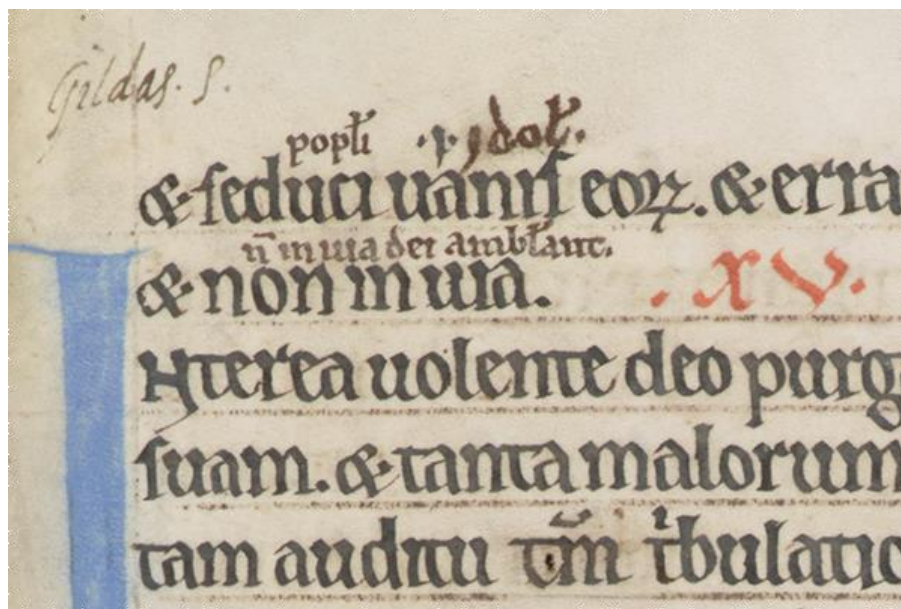 Gildas. S.
popłi .p. ydoł.
& seduci uanis eoꝝ. & erra
n̄ in uia dei ambłant.
& non in uia. .XV.
INterea uolente deo purg
suam. & tanta malorum
tam auditu tm̄ tbulatio